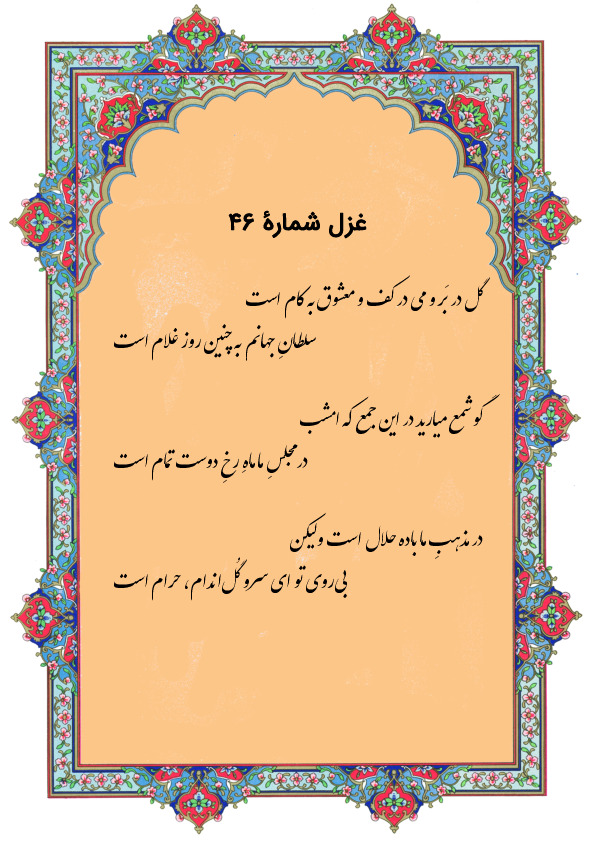 غزل شمارهٔ ۴۶
گل در بَر و می در کف و معشوق به کام است
سلطانِ جهانم به چنین روز غلام است
گو شمع میارید در این جمع که امشب
در مجلسِ ما ماهِ رخِ دوست تمام است
در مذهبِ ما باده حلال است ولیکن
بی‌روی تو ای سرو گُل‌اندام، حرام است